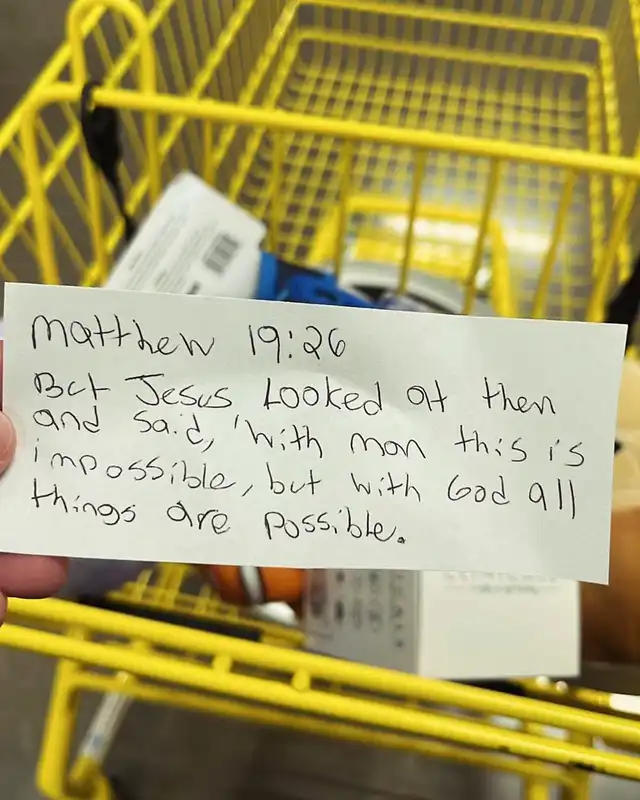 Matthew 19:26
But Jesus Looked at them
and said, 'with man this is
impossible, but with God all
things are possible.